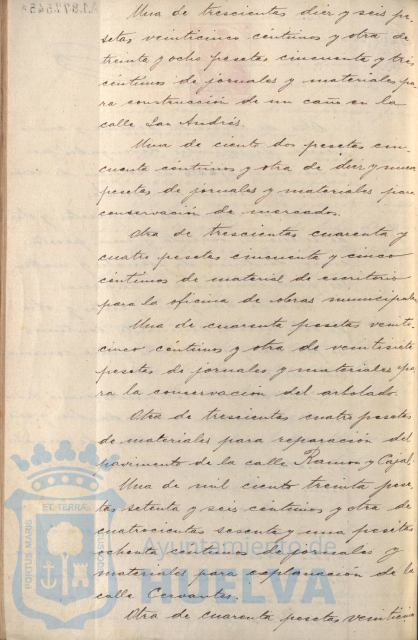 A.1.897.545*
Una de trescientas diez y seis pe-
setas veinticinco céntimos y otra de
treinta y ocho pesetas cincuenta y tres
céntimos de jornales y materiales pa-
ra construcción de un caño en la
calle San Andrés.
Una de ciento dos pesetas cin-
cuenta céntimos y otra de diez y nueve
pesetas de jornales y materiales para
conservación de mercados.
Otra de trescientas cuarenta y
cuatro pesetas cincuenta y cinco
céntimos de material de escritorio
para la oficina de obras municipales
Una de cuarenta pesetas veinti-
cinco céntimos y otra de veintisiete
pesetas de jornales y materiales pa-
ra la conservación del arbolado.
Otra de trescientas cuatro pesetas
de materiales para reparación del
pavimento de la calle Ramon y Cajal.
Una de mil ciento treinta pese-
tas setenta y seis céntimos y otra de
cuatrocientas sesenta y una pesetas
ochenta céntimos de jornales y
materiales para explanación de la
calle Cervantes.
Otra de cuarenta pesetas veinticinco
PORTUS MARIS
ET TERRAE
Ayuntamiento de
HUELVA